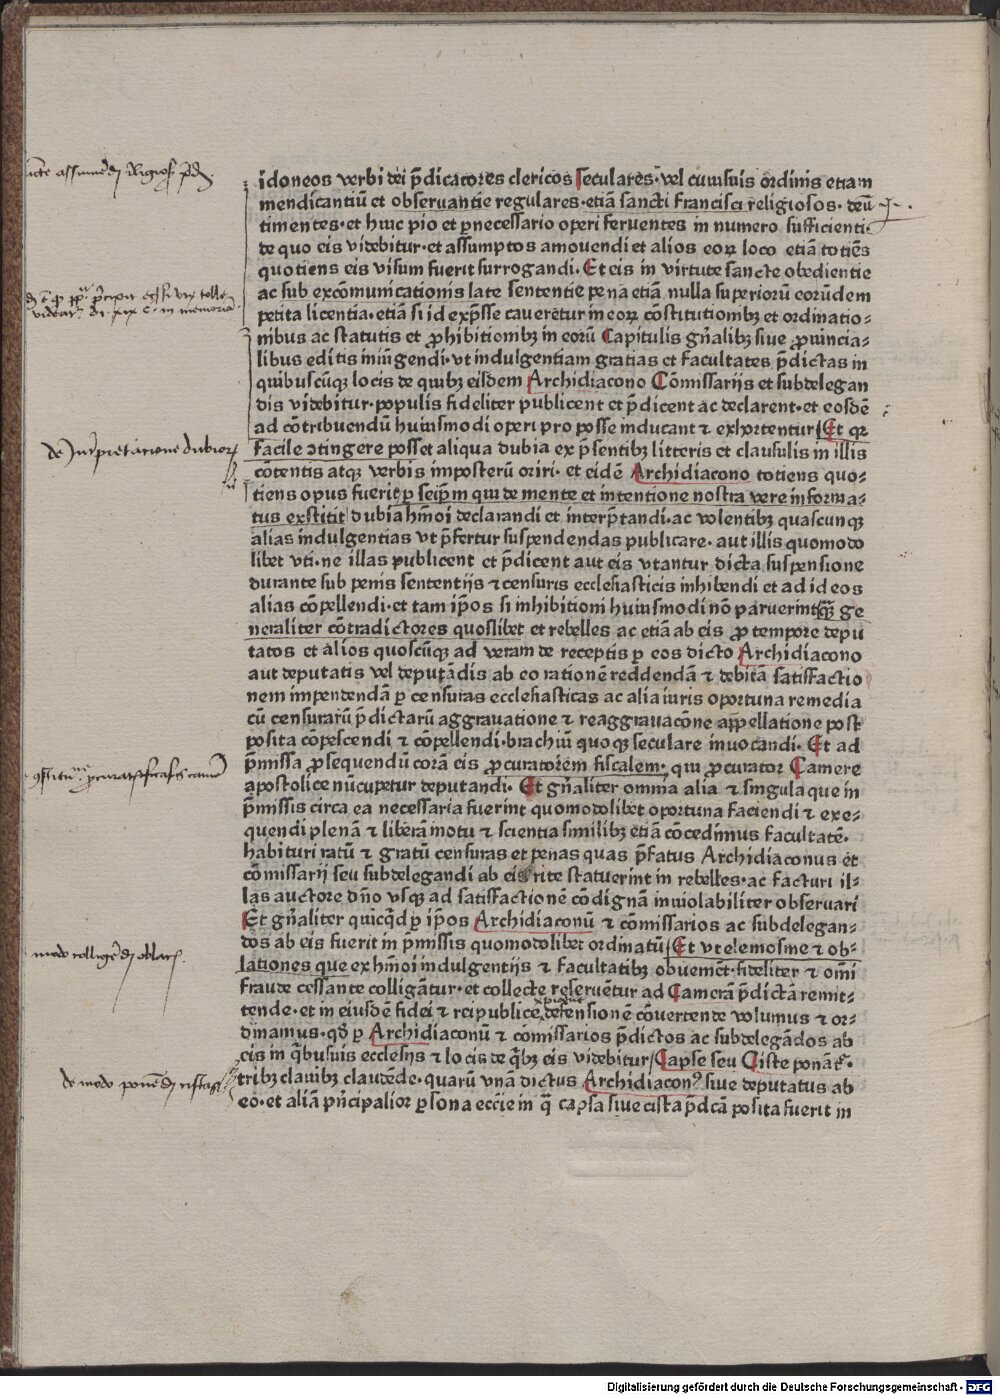 idoneos verbi dei p̄dicatores clericos seculares· vel cuiusuis ordinis etiam
mendicantiū et obseruantie regulares· etiā sancti Francisci religiosos· deū
timentes· et huic pio et pernecessario operi feruentes in numero sufficienti·
de quo eis videbitur· et assumptos amouendi et alios eoꝝ loco etiā totiēs
quotiens eis visum fuerit surrogandi· Et eis in virtute sancte obedientie
ac sub excōmunicationis late sententie pena etiā nulla superiorū eorūdem
petita licentia· etiā si id exp̄sse caueretur in eoꝝ cōstitutiombꝫ et ordinatio⸗
nibus ac statutis et ꝓhibitiombꝫ in eorū Capitulis gn̄alibꝫ siue ꝓuincia⸗
libus editis iniūgendi· vt indulgentiam gratias et facultates p̄dictas in
quibuscūqꝫ locis de quibꝫ eisdem Archidiacono Cōmissarijs et subdelegan
dis videbitur· populis fideliter publicent et p̄dicent ac declarent· et eosdē
ad cōtribuendū huiusmodi operi pro posse inducant ⁊ exhortentur Et qꝛ
facile ↄtingere posset aliqua dubia ex p̄sentibꝫ litteris et clausulis in illis
cōtentis atqꝫ verbis imposterū oriri· et eidē Archidiacono totiens quo⸗
tiens opus fuerit ꝑ seip̄m qui de mente et intentione nostra vere informa⸗
tus exstitit dubia hm̄oi declarandi et interp̄tandi· ac volentibꝫ quascunqꝫ
alias indulgentias vt p̄fertur suspendendas publicare· aut illis quomodo
libet vti· ne illas publicent et p̄dicent aut eis vtantur dicta suspensione
durante sub penis sententijs ⁊ censuris ecclesiasticis inhibendi et ad id eos
alias cōpellendi· et tam ip̄os si inhibitioni huiusmodi nō paruerint ꝙ̄ ge
neraliter cōtradictores quoslibet et rebelles ac etiā ab eis ꝓ tempore depu
tatos et alios quoscūqꝫ ad veram de receptis ꝑ eos dicto Archidiacono
aut deputatis vel deputādis ab eo rationē reddendā ⁊ debitā satisfactio
nem impendendā ꝑ censuras ecclesiasticas ac alia iuris oportuna remedia
cū censurarū p̄dictarū aggrauatione ⁊ reaggrauacōne appellatione post
posita cōpescendi ⁊ cōpellendi· brachiū quoqꝫ seculare inuocandi· Et ad
p̄missa ꝓsequendū corā eis ꝓcuratorem fiscalem· qui ꝓcurator Camere
apostolice nūcupetur deputandi· Et gn̄aliter omnia alia ⁊ singula que in
p̄missis circa ea necessaria fuerint quomodolibet oportuna faciendi ⁊ exe⸗
quendi plenā ⁊ liberā motu ⁊ scientia similibꝫ etiā cōcedimus facultatē·
habituri ratū ⁊ gratū censuras et penas quas p̄fatus Archidiaconus et
cōmissarij seu subdelegandi ab eis rite statuerint in rebelles· ac facturi il⸗
las auctore dn̄o vsqꝫ ad satisfactionē cōdignā inuiolabiliter obseruari
Et gn̄aliter quicq̄d ꝑ ip̄os Archidiaconū ⁊ cōmissarios ac subdelegan⸗
dos ab eis fuerit in p̄missis quomodolibet ordinatū Et vt elemosine ⁊ ob⸗
lationes que ex hm̄oi indulgentijs ⁊ facultatibꝫ obuemēt· fideliter ⁊ om̄i
fraude cessante colligātur· et collecte reseruētur ad Camerā p̄dictā remit⸗
tende· et in eiusdē fidei ⁊ reipublice defensionē cōuertende volumus ⁊ or⸗
dinamus· qd̄ ꝑ Archidiaconū ⁊ cōmissarios p̄dictos ac subdelegādos ab
eis in q̄busuis ecclesijs ⁊ locis de q̄bꝫ eis videbitur Capse seu Ciste ponāt̄·
tribꝫ clauibꝫ claudēde· quarū vnā dictus Archidiaconꝰ siue deputatus ab
eo· et aliā pn̄cipalior ꝑsona eccīe in q̄ capsa siue cista p̄dcā posita fuerit in
de Interpretatione dubioꝝ
Digitalisierung gefördert durch die Deutsche Forschungsgemeinschaft - DFG